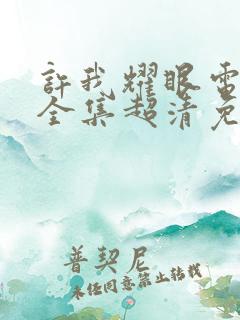 許我耀眼電
全集超清免
普契尼
未经同意禁止转载